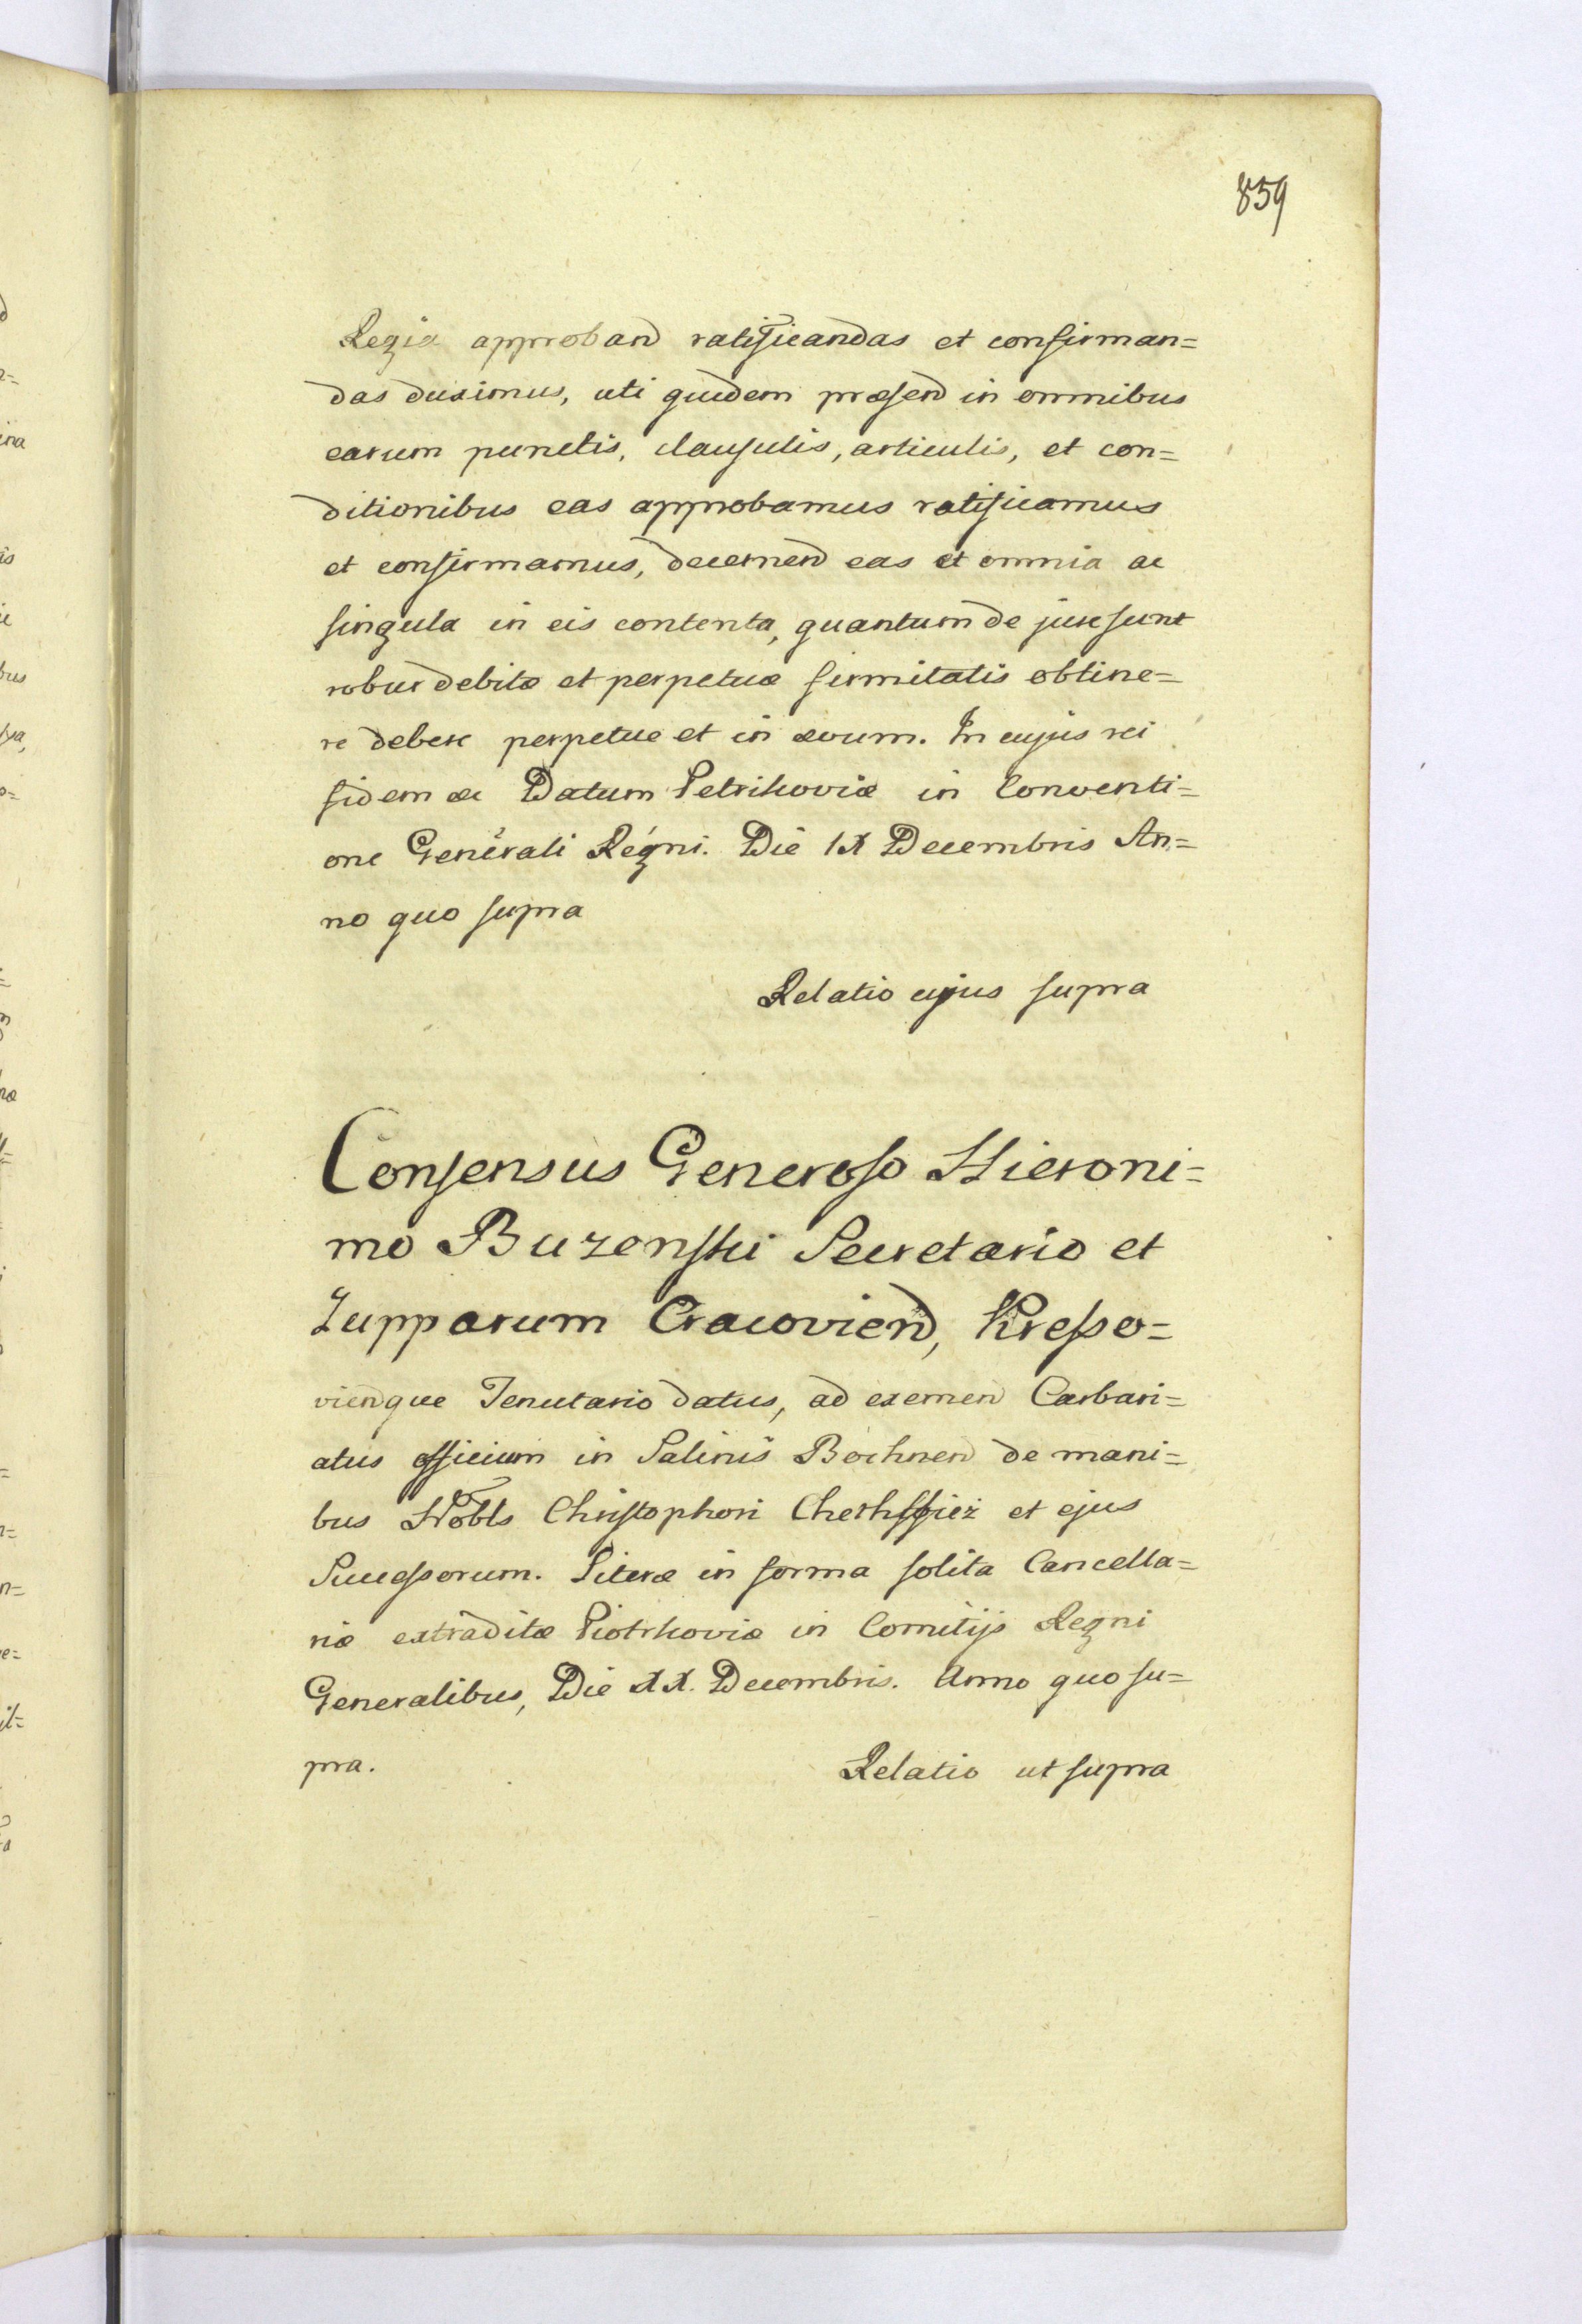 859
Regia approband ratificandas et confirman=
das duximus, uti quidem præsend in omnibus
earum punctis, clausulis, articulis, et con=
ditionibus eas approbamus ratificamus
et confirmamus, decernend eas et omnia ac
singula in eis contenta, quantum de jure sunt
robur debitæ et perpetuæ firmitatis obtine=
re debere perpetue et in ævum. In cujus rei
fidem &c Datum Petrikoviæ in Conventi=
one Generali Regni. Die IX Decembris An=
no quo supra
Relatio cujus supra
Consensus Generoso Hieroni=
mo Buzenski Secretario et
Zupparum Cracoviend, Krzesso=
viendque Tenutario datus, ad exemend Carbari=
atus officium in Salinis Bochnend de mani=
bus Nobls Christophori et ejus
Successorum. Literæ in forma solita Cancella=
riæ extraditæ Piotrkoviæ in Comitijs Regni
Generalibus, Die XX. Decembris. Anno quo su=
pra.
Relatio ut supra